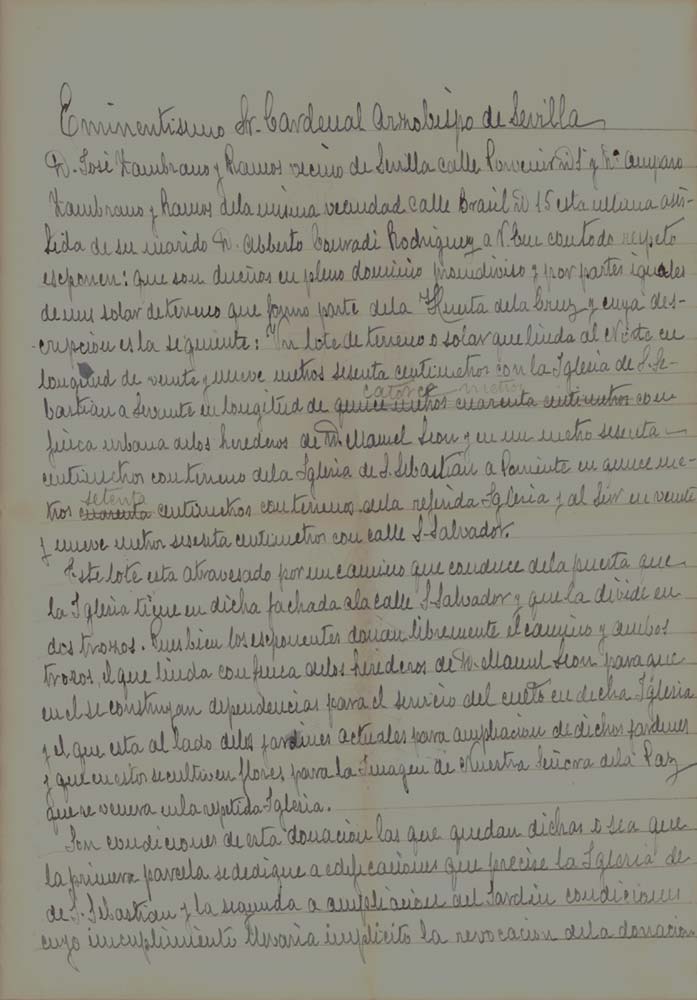 Eminentisimo Sr. Cardenal Arzobispo de Sevilla
D. José Zambrano y Ramos vecino de Sevilla calle Porvenir nº 1º y Dª Amparo
Zambrano y Ramos dela misma vecindad calle Brasil nº 15 esta ultima asis-
tida de su marido D. Alberto Conradi Rodriguez a V. Em con todo respeto
esponen: que son dueños en pleno dominio proindiviso y por partes iguales
de un solar de terreno que formo parte dela Huerta dela Cruz y cuya des-
cripcion es la seguiente: Un lote de terreno o solar que linda al Norte en
longitud de veinte y nueve metros sesenta centimetros con la Iglesia de S. Se-
catorce metros
bastian a Levante en longitud de quince metros cuarenta centimetros con
finca urbana delos herederos de D. Manuel Leon y en un metro sesenta
centimetros con terreno dela Iglesia de S. Sebastian a Poniente en quince me-
setenta
tros cuarenta centimetros con terrenos dela referida Iglesia y al Sur en veinte
y nueve metros sesenta centimetros con calle S. Salvador.
Este lote esta atravesado por un camino que conduce dela puerta que
la Iglesia tiene en dicha fachada ala calle S. Salvador y que la divide en
dos trozos. Pues bien los esponentes donan libremente el camino y ambos
trozos, el que linda con finca delos herederos de D. Manuel Leon para que
en el se construyan dependencias para el servicio del culto en dicha Iglesia
y el que esta al lado delos jardines actuales para ampliacion de dichos jardines
y que en estos se cultiven flores para la Imagen de Nuestra Señora dela Paz
que se venera en la repetida Iglesia.
Son condiciones de esta donacion las que quedan dichas o sea que
la primera parcela se dedique a edificaciones que precise la Iglesia de
de S. Sebastian y la segunda a ampliacion del Jardin condiciones
cuyo incumplimiento llevaria implicito la revocacion dela donacion